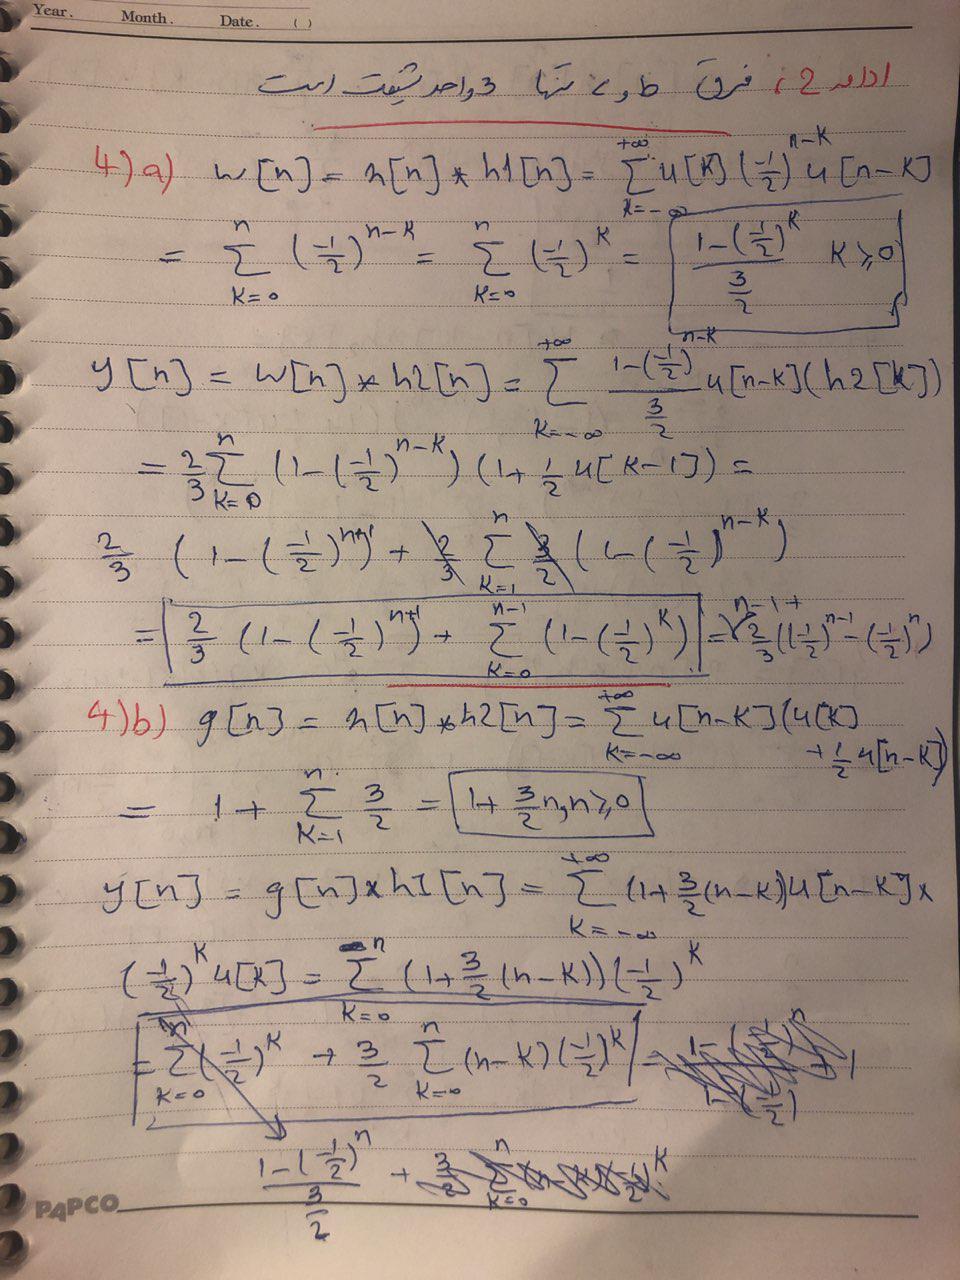 Year. Month. Date. ( )
ادامه 2، فرق b و c تنها 3 واحد شیفت است
4)a) w[n] = x[n] * h1[n] = Σ_{k=-∞}^{+∞} u[k] (-1/2)^{n-k} u[n-k]
= Σ_{k=0}^{n} (-1/2)^{n-k} = Σ_{k=0}^{n} (-1/2)^k = (1-(-1/2)^k)/(3/2) k≥0
y[n] = w[n] * h2[n] = Σ_{k=-∞}^{+∞} (1-(-1/2)^{n-k})/(3/2) u[n-k](h2[k])
= 2/3 Σ_{k=0}^{n} (1-(-1/2)^{n-k}) (1+1/2 u[k-1]) =
2/3 (1-(-1/2)^{n+1}) + 2/3 Σ_{k=1}^{n} 3/2 (1-(-1/2)^{n-k})
= 2/3 (1-(-1/2)^{n+1}) + Σ_{k=0}^{n-1} (1-(-1/2)^k) = n-1+ 2/3((-1/2)^{n-1} - (-1/2)^n)
4)b) g[n] = x[n] * h2[n] = Σ_{k=-∞}^{+∞} u[n-k](u[k]
+ 1/2 u[n-k])
= 1 + Σ_{k=1}^{n} 3/2 = 1+ 3/2 n, n≥0
y[n] = g[n] * h1[n] = Σ_{k=-∞}^{+∞} (1+3/2(n-k))u[n-k] ×
(-1/2)^k u[k] = Σ_{k=0}^{n} (1+3/2(n-k))(-1/2)^k
= Σ_{k=0}^{n} (-1/2)^k + 3/2 Σ_{k=0}^{n} (n-k)(-1/2)^k =
(1-(-1/2)^n)/(3/2) +
PAPCO